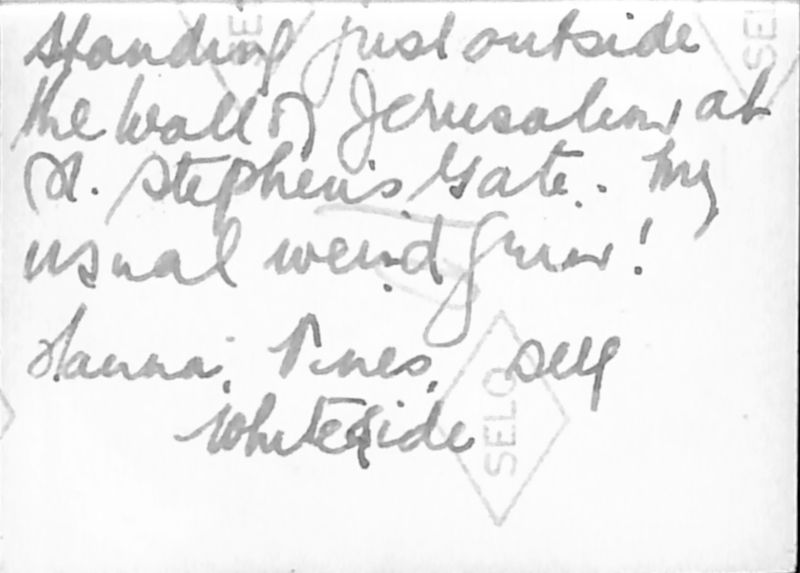 Standing just outside
the Wall of Jerusalem at
St. Stephen's Gate. My
usual weird grin!
Hanna, Pines, Self
Whiteside
SELO
SEL